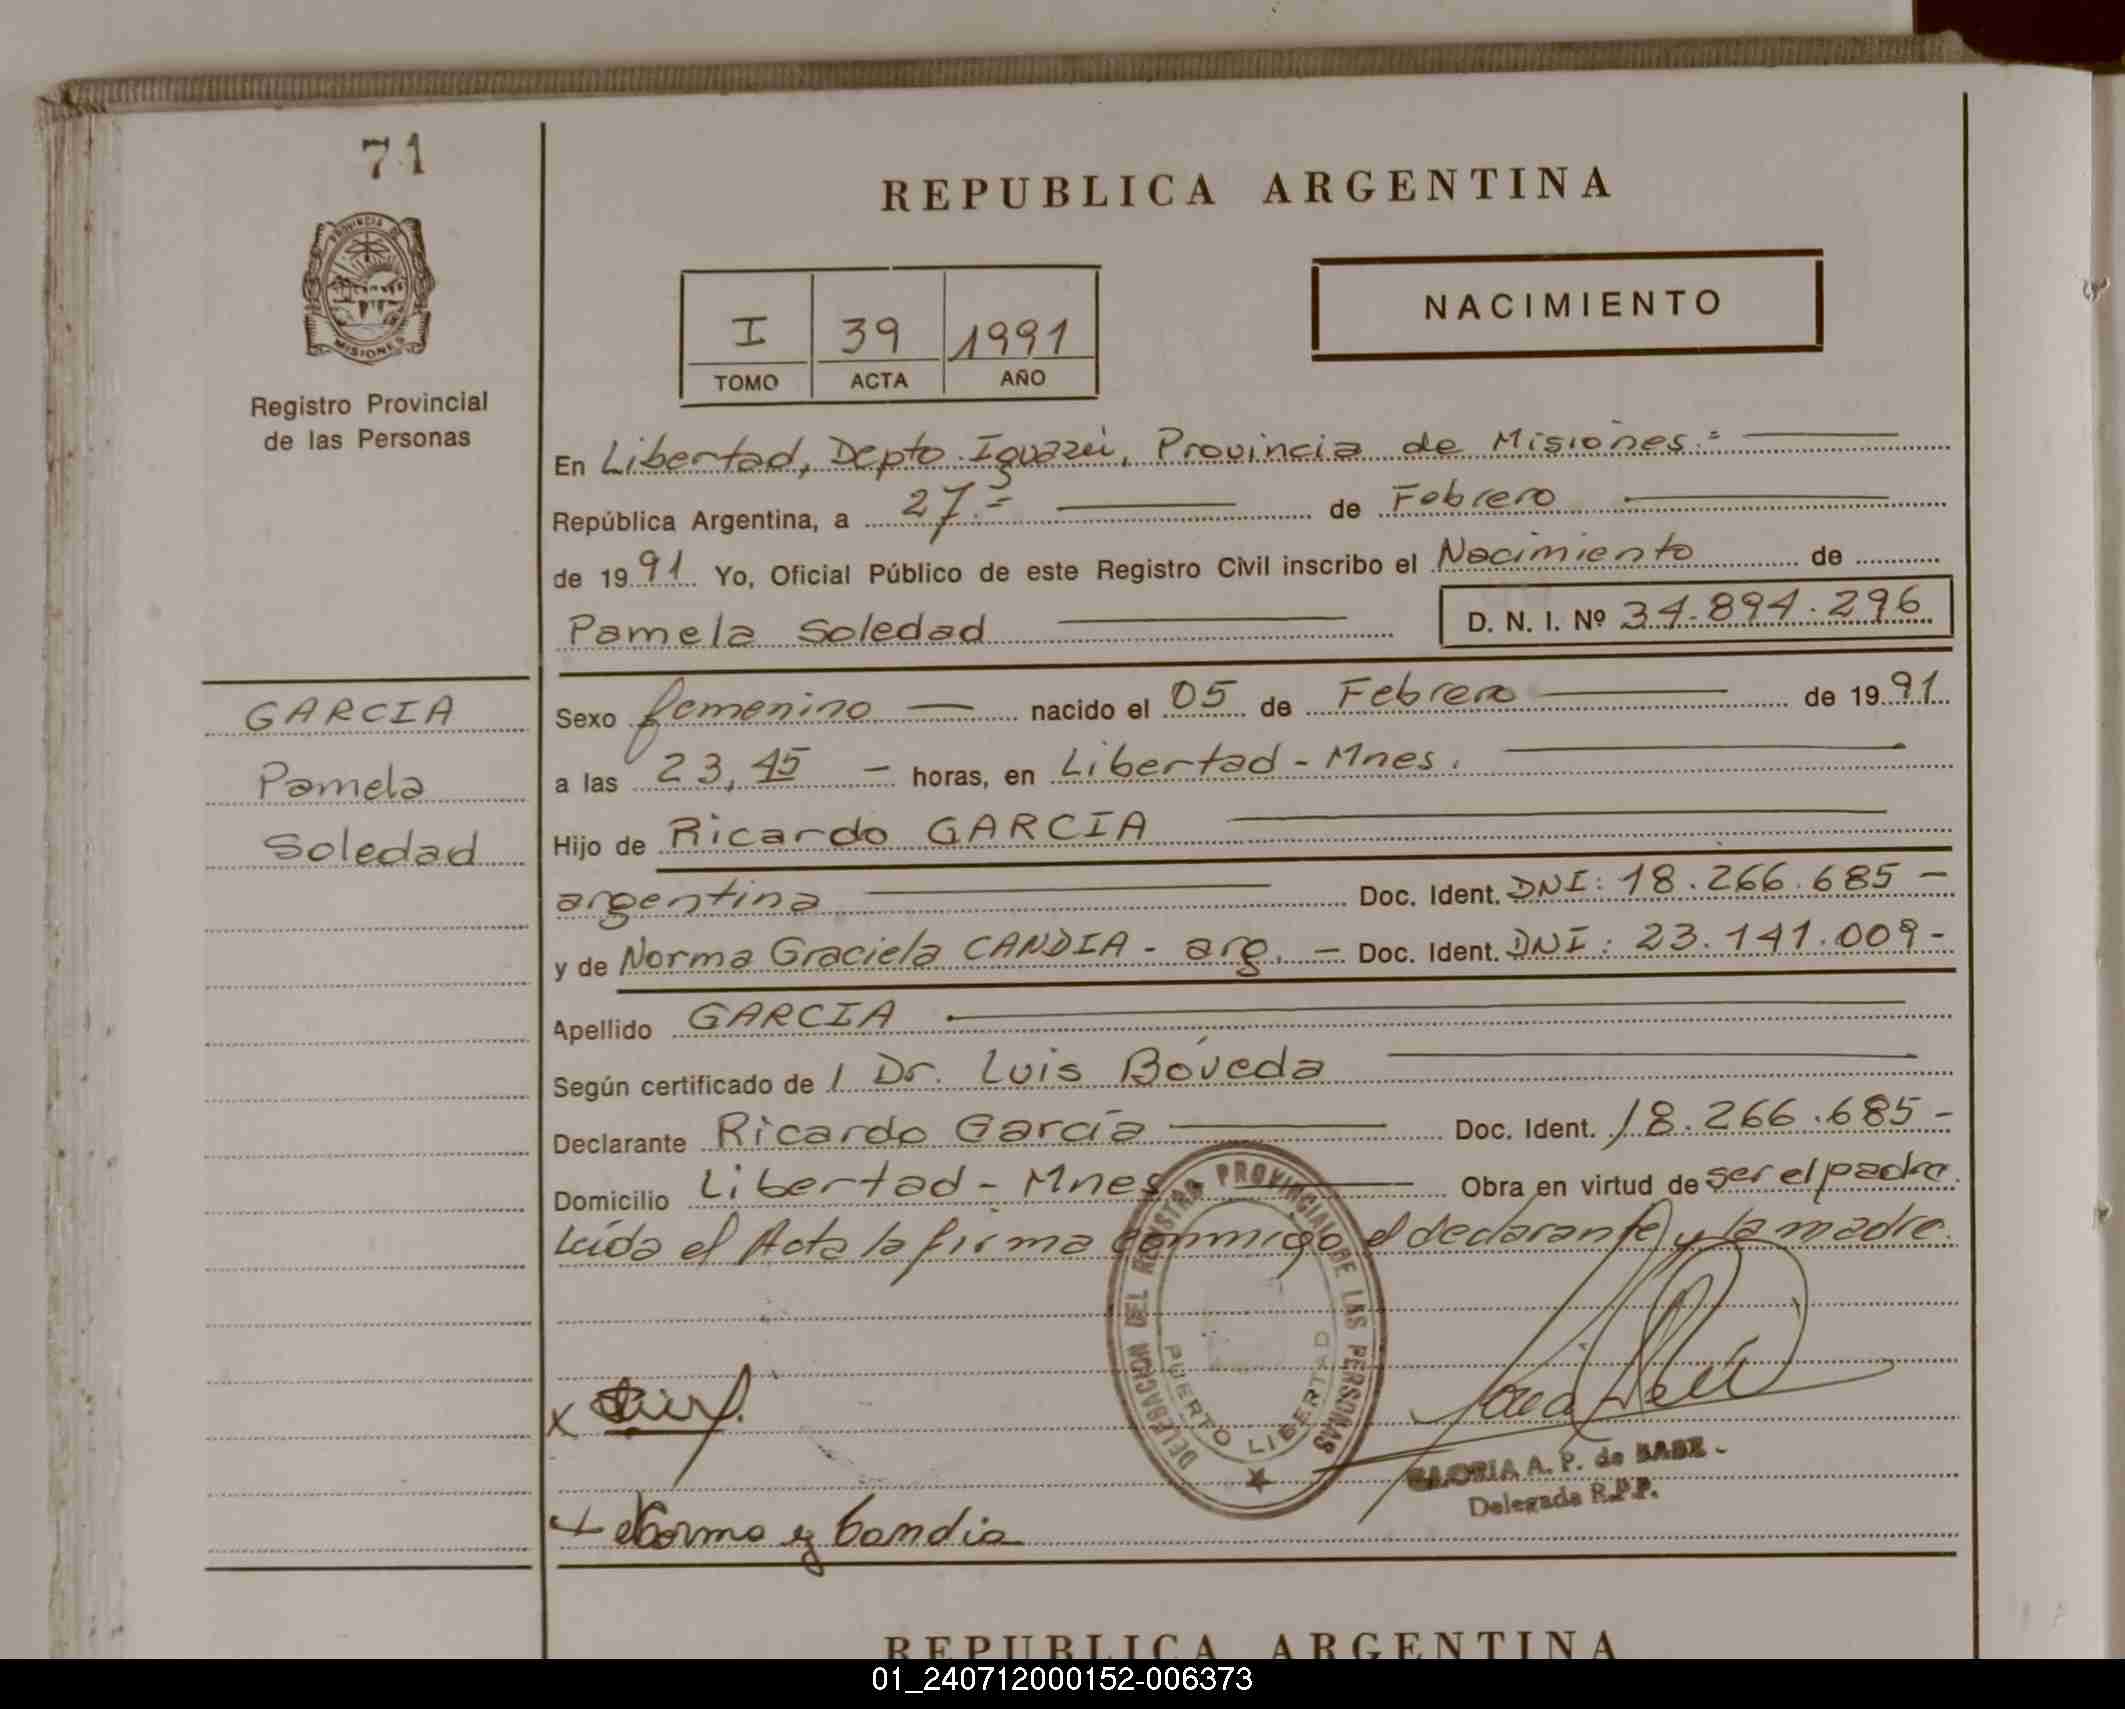 71
PROVINCIA DE
MISIONES
Registro Provincial
de las Personas
REPUBLICA ARGENTINA
I 39 1991
TOMO ACTA AÑO
NACIMIENTO
En Libertad, Depto. Iguazú, Provincia de Misiones.=
República Argentina, a 27.= de Febrero
de 1991 Yo, Oficial Público de este Registro Civil inscribo el Nacimiento de
Pamela Soledad D. N. I. Nº 34.894.296
GARCIA
Pamela
Soledad
Sexo femenino — nacido el 05 de Febrero de 1991
a las 23,45 — horas, en Libertad - Mnes.
Hijo de Ricardo GARCIA
argentina Doc. Ident. DNI: 18.266.685 —
y de Norma Graciela CANDIA - arg. — Doc. Ident. DNI: 23.141.009 -
Apellido GARCIA
Según certificado de / Dr. Luis Bóveda
Declarante Ricardo García Doc. Ident. 18.266.685 -
Domicilio Libertad - Mnes Obra en virtud de ser el padre.
Leída el Acta la firma conmigo el declarante y la madre.
DELEGACION DEL REGISTRO PROVINCIAL DE LAS PERSONAS
PUERTO LIBERTAD
X
GLORIA A. P. de
Delegada R.P.P.
Norma g Candia
REPUBLICA ARGENTINA
01_240712000152-006373